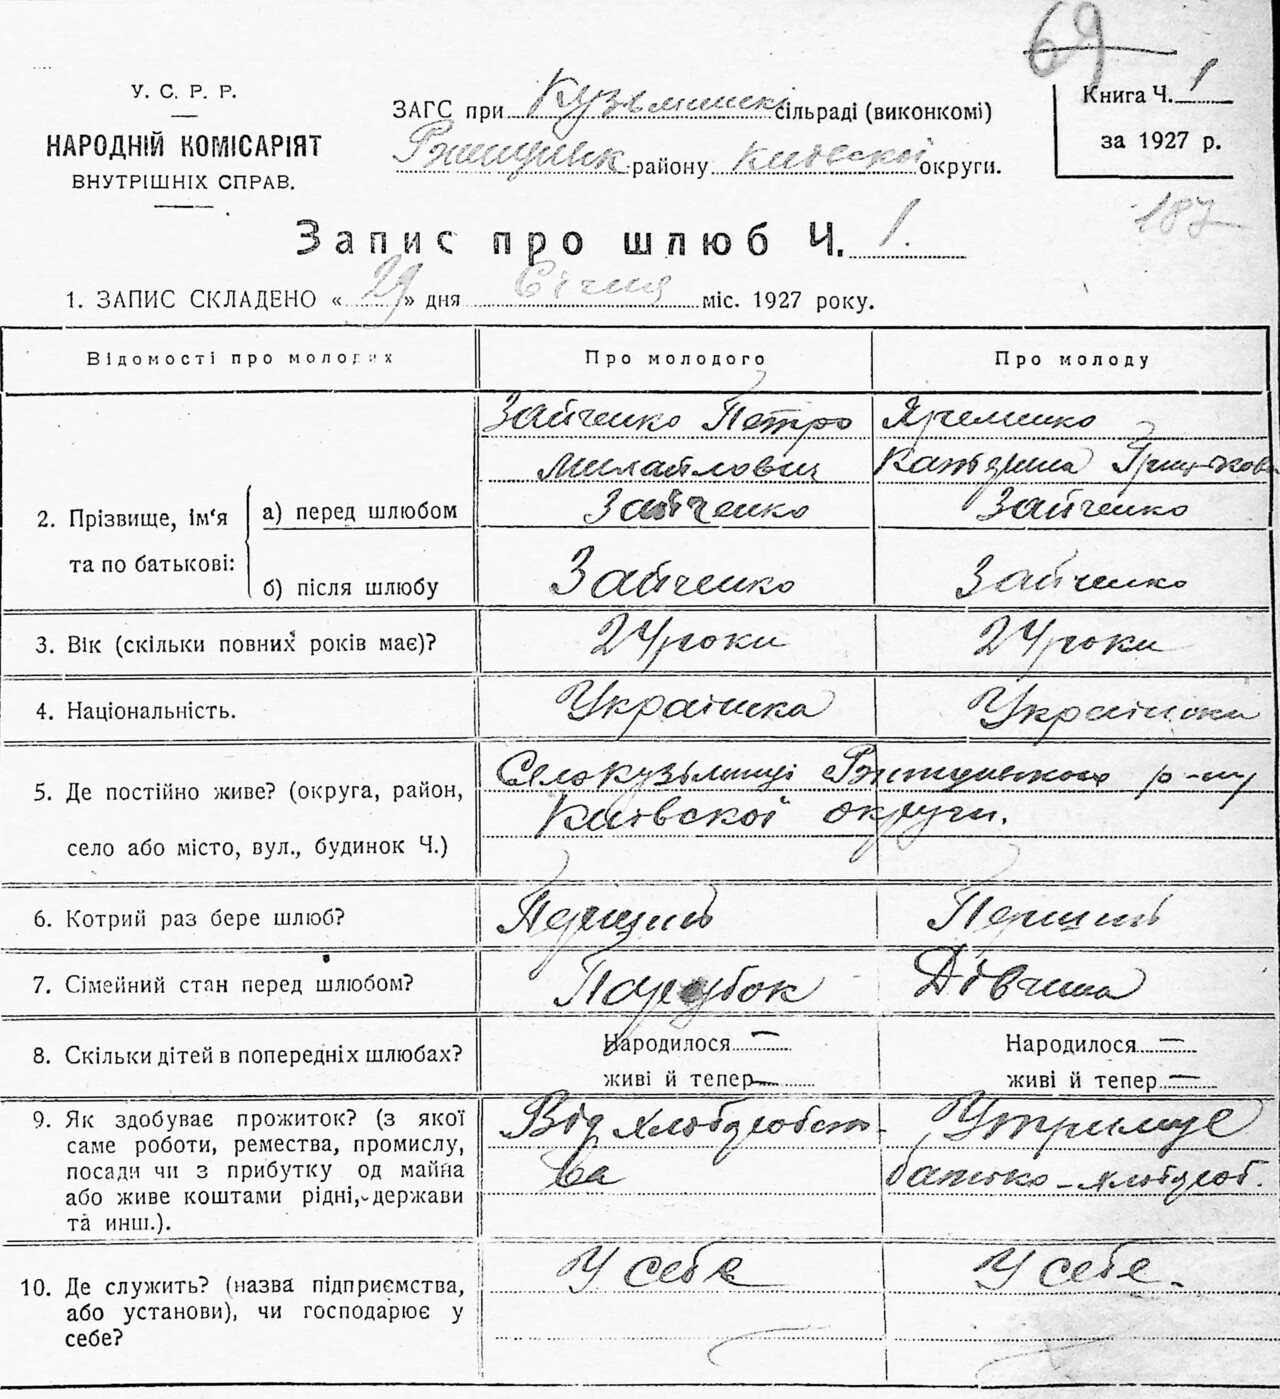 69
У. С. Р. Р.
НАРОДНІЙ КОМІСАРІЯТ
ВНУТРІШНІХ СПРАВ.
ЗАГС при Кузьминській сільраді (виконкомі)
Ржищівск. району Київскої округи.
Книга Ч. 1
за 1927 р.
187
Запис про шлюб Ч. 1.
1. ЗАПИС СКЛАДЕНО « 29 » дня Січня міс. 1927 року.
Відомості про молодих
Про молодого
Про молоду
2. Прізвище, ім'я та по батькові:
Зайченко Петро
Михайлович
Яременко
Катерина
а) перед шлюбом
Зайченко
Зайченко
б) після шлюбу
Зайченко
Зайченко
3. Вік (скільки повних років має)?
24 роки
24 роки
4. Національність.
Українка
Українка
5. Де постійно живе? (округа, район,
село або місто, вул., будинок Ч.)
Село Кузьминці Ржищівского р-ну
Київскої округи.
6. Котрий раз бере шлюб?
Перший
Перший
7. Сімейний стан перед шлюбом?
Парубок
Дівчина
8. Скільки дітей в попередніх шлюбах?
Народилося —
живі й тепер —
Народилося —
живі й тепер —
9. Як здобуває прожиток? (з якої
саме роботи, ремества, промислу,
посади чи з прибутку од майна
або живе коштами рідні, держави
та инш.).
Від хліборобст-
ва
Утримує
батько - хлібороб.
10. Де служить? (назва підприємства,
або установи), чи господарює у
себе?
У себе
У себе.